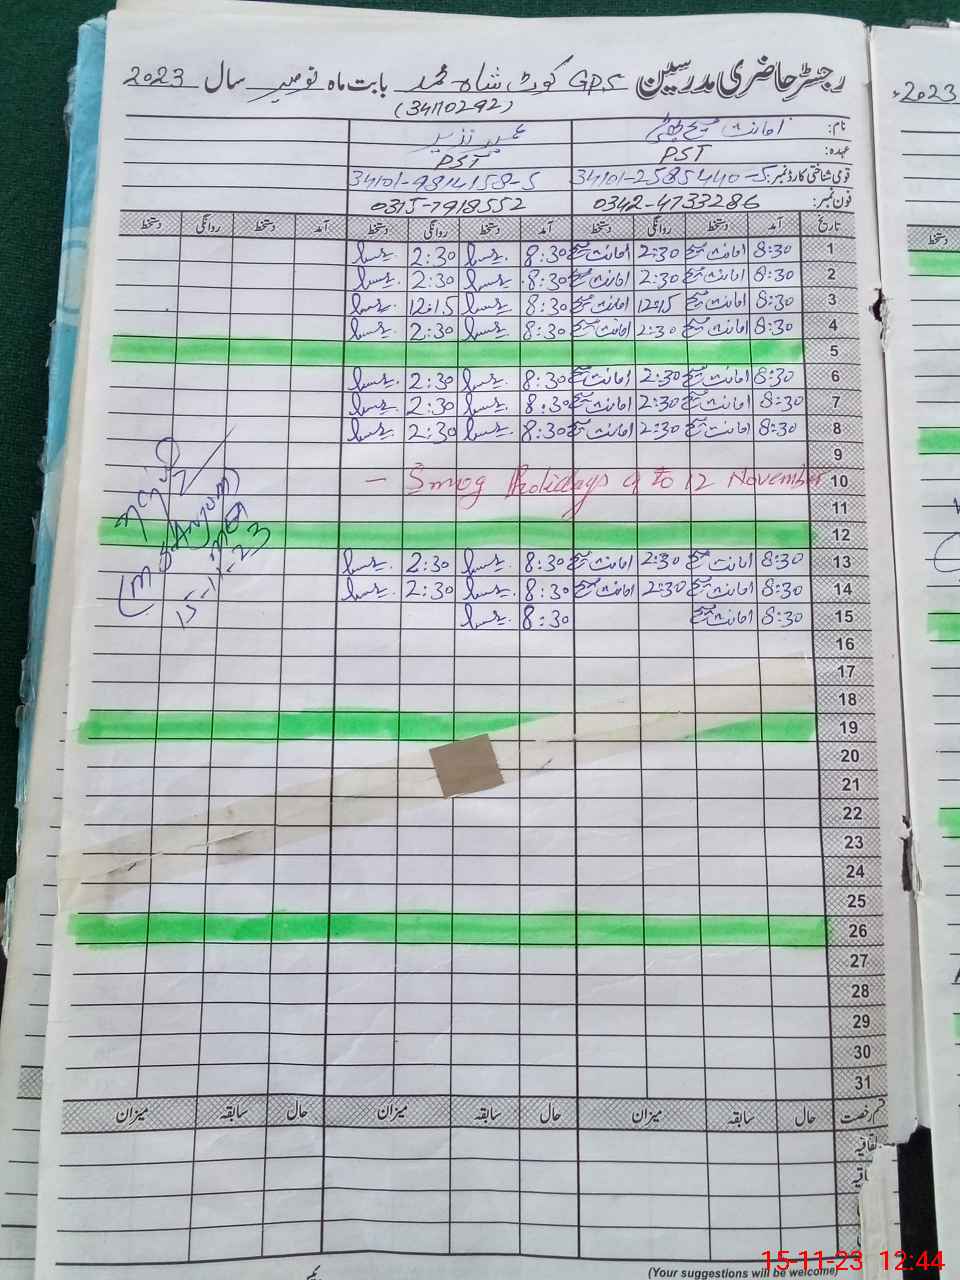 رجسٹر حاضری مدرسین GPS کوٹ شاہ محمد بابت ماہ نومبر سال 2023
(34110292)
2023ء
نام: امانت مسیح بھٹی
عہدہ: PST PST
قومی شناختی کارڈ نمبر: 34101-2585440-5 34101-9814158-5
فون نمبر: 0342-4733286 0315-7918552
تاریخ آمد دستخط روانگی دستخط آمد دستخط روانگی دستخط آمد دستخط روانگی دستخط
دستخط
1 8:30 امانت مسیح 2:30 امانت مسیح 8:30 2:30
2 8:30 امانت مسیح 2:30 امانت مسیح 8:30 2:30
3 8:30 امانت مسیح 12:15 امانت مسیح 8:30 12:15
4 8:30 امانت مسیح 2:30 امانت مسیح 8:30 2:30
5
6 8:30 امانت مسیح 2:30 امانت مسیح 8:30 2:30
7 8:30 امانت مسیح 2:30 امانت مسیح 8:30 2:30
8 8:30 امانت مسیح 2:30 امانت مسیح 8:30 2:30
9
10 - Smog Holidays 9 to 12 November
11
12
13 8:30 امانت مسیح 2:30 امانت مسیح 8:30 2:30
14 8:30 امانت مسیح 2:30 امانت مسیح 8:30 2:30
15 8:30 امانت مسیح 8:30
15-11-23
16
17
18
19
20
21
22
23
24
25
26
27
28
29
30
31
قسم رخصت حال سابقہ میزان حال سابقہ میزان حال سابقہ میزان
(Your suggestions will be welcome)
15-11-23 12:44